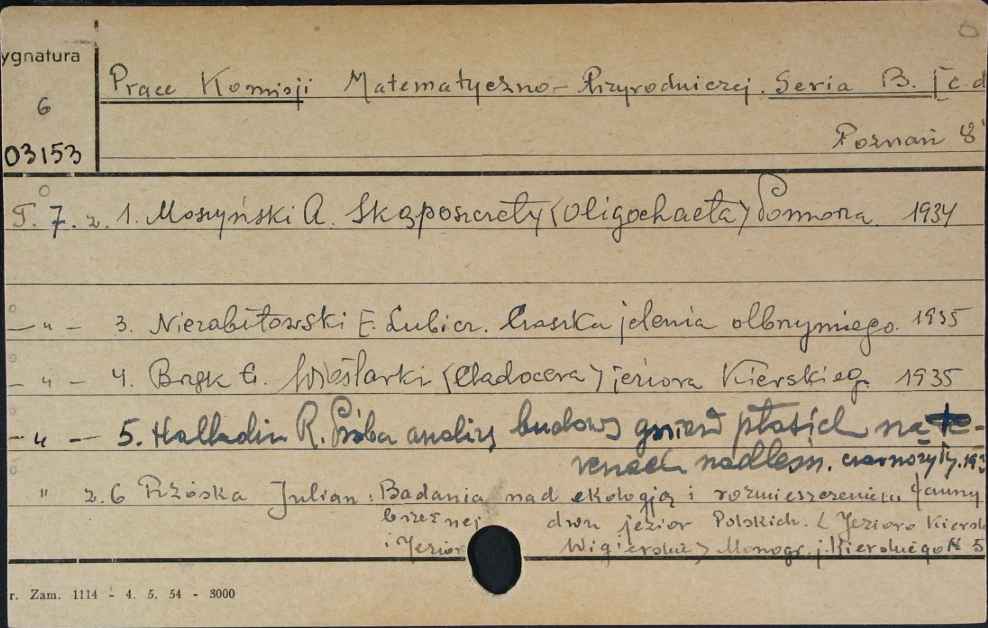 ygnatura
6
03153
Prace Komisji Matematyczno-Przyrodniczej. Seria B. [c.d
Poznań 8°
T. 7. z. 1. Moszyński A. Skąposzczety (Oligochaeta) Pomorza. 1934
- „ - 3. Niezabitowski E. Lubicz. Czaszka jelenia olbrzymiego. 1935
- „ - 4. Bryk G. Wioślarki (Cladocera) jeziora Kierskieg. 1935
- „ - 5. Halladin R. Próba analizy budowy gniazd ptasich na te-
renach nadleśn. 193
„ z. 6 Rzóska Julian: Badania nad ekologją i rozmieszczeniem fauny
brzeżnej dwu jezior Polskich. (Jezioro Kiersk
i Jezior Wigierskie) Monogr. j. Kierskiego N 5
r. Zam. 1114 - 4. 5. 54 - 3000